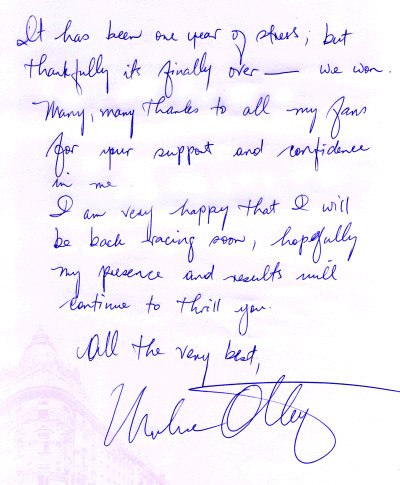 It has been one year of stress, but
thankfully its finally over — we won.
Many, many thanks to all my fans
for your support and confidence
in me.
I am very happy that I will
be back racing soon, hopefully
my presence and results will
continue to thrill you.
All the very best,